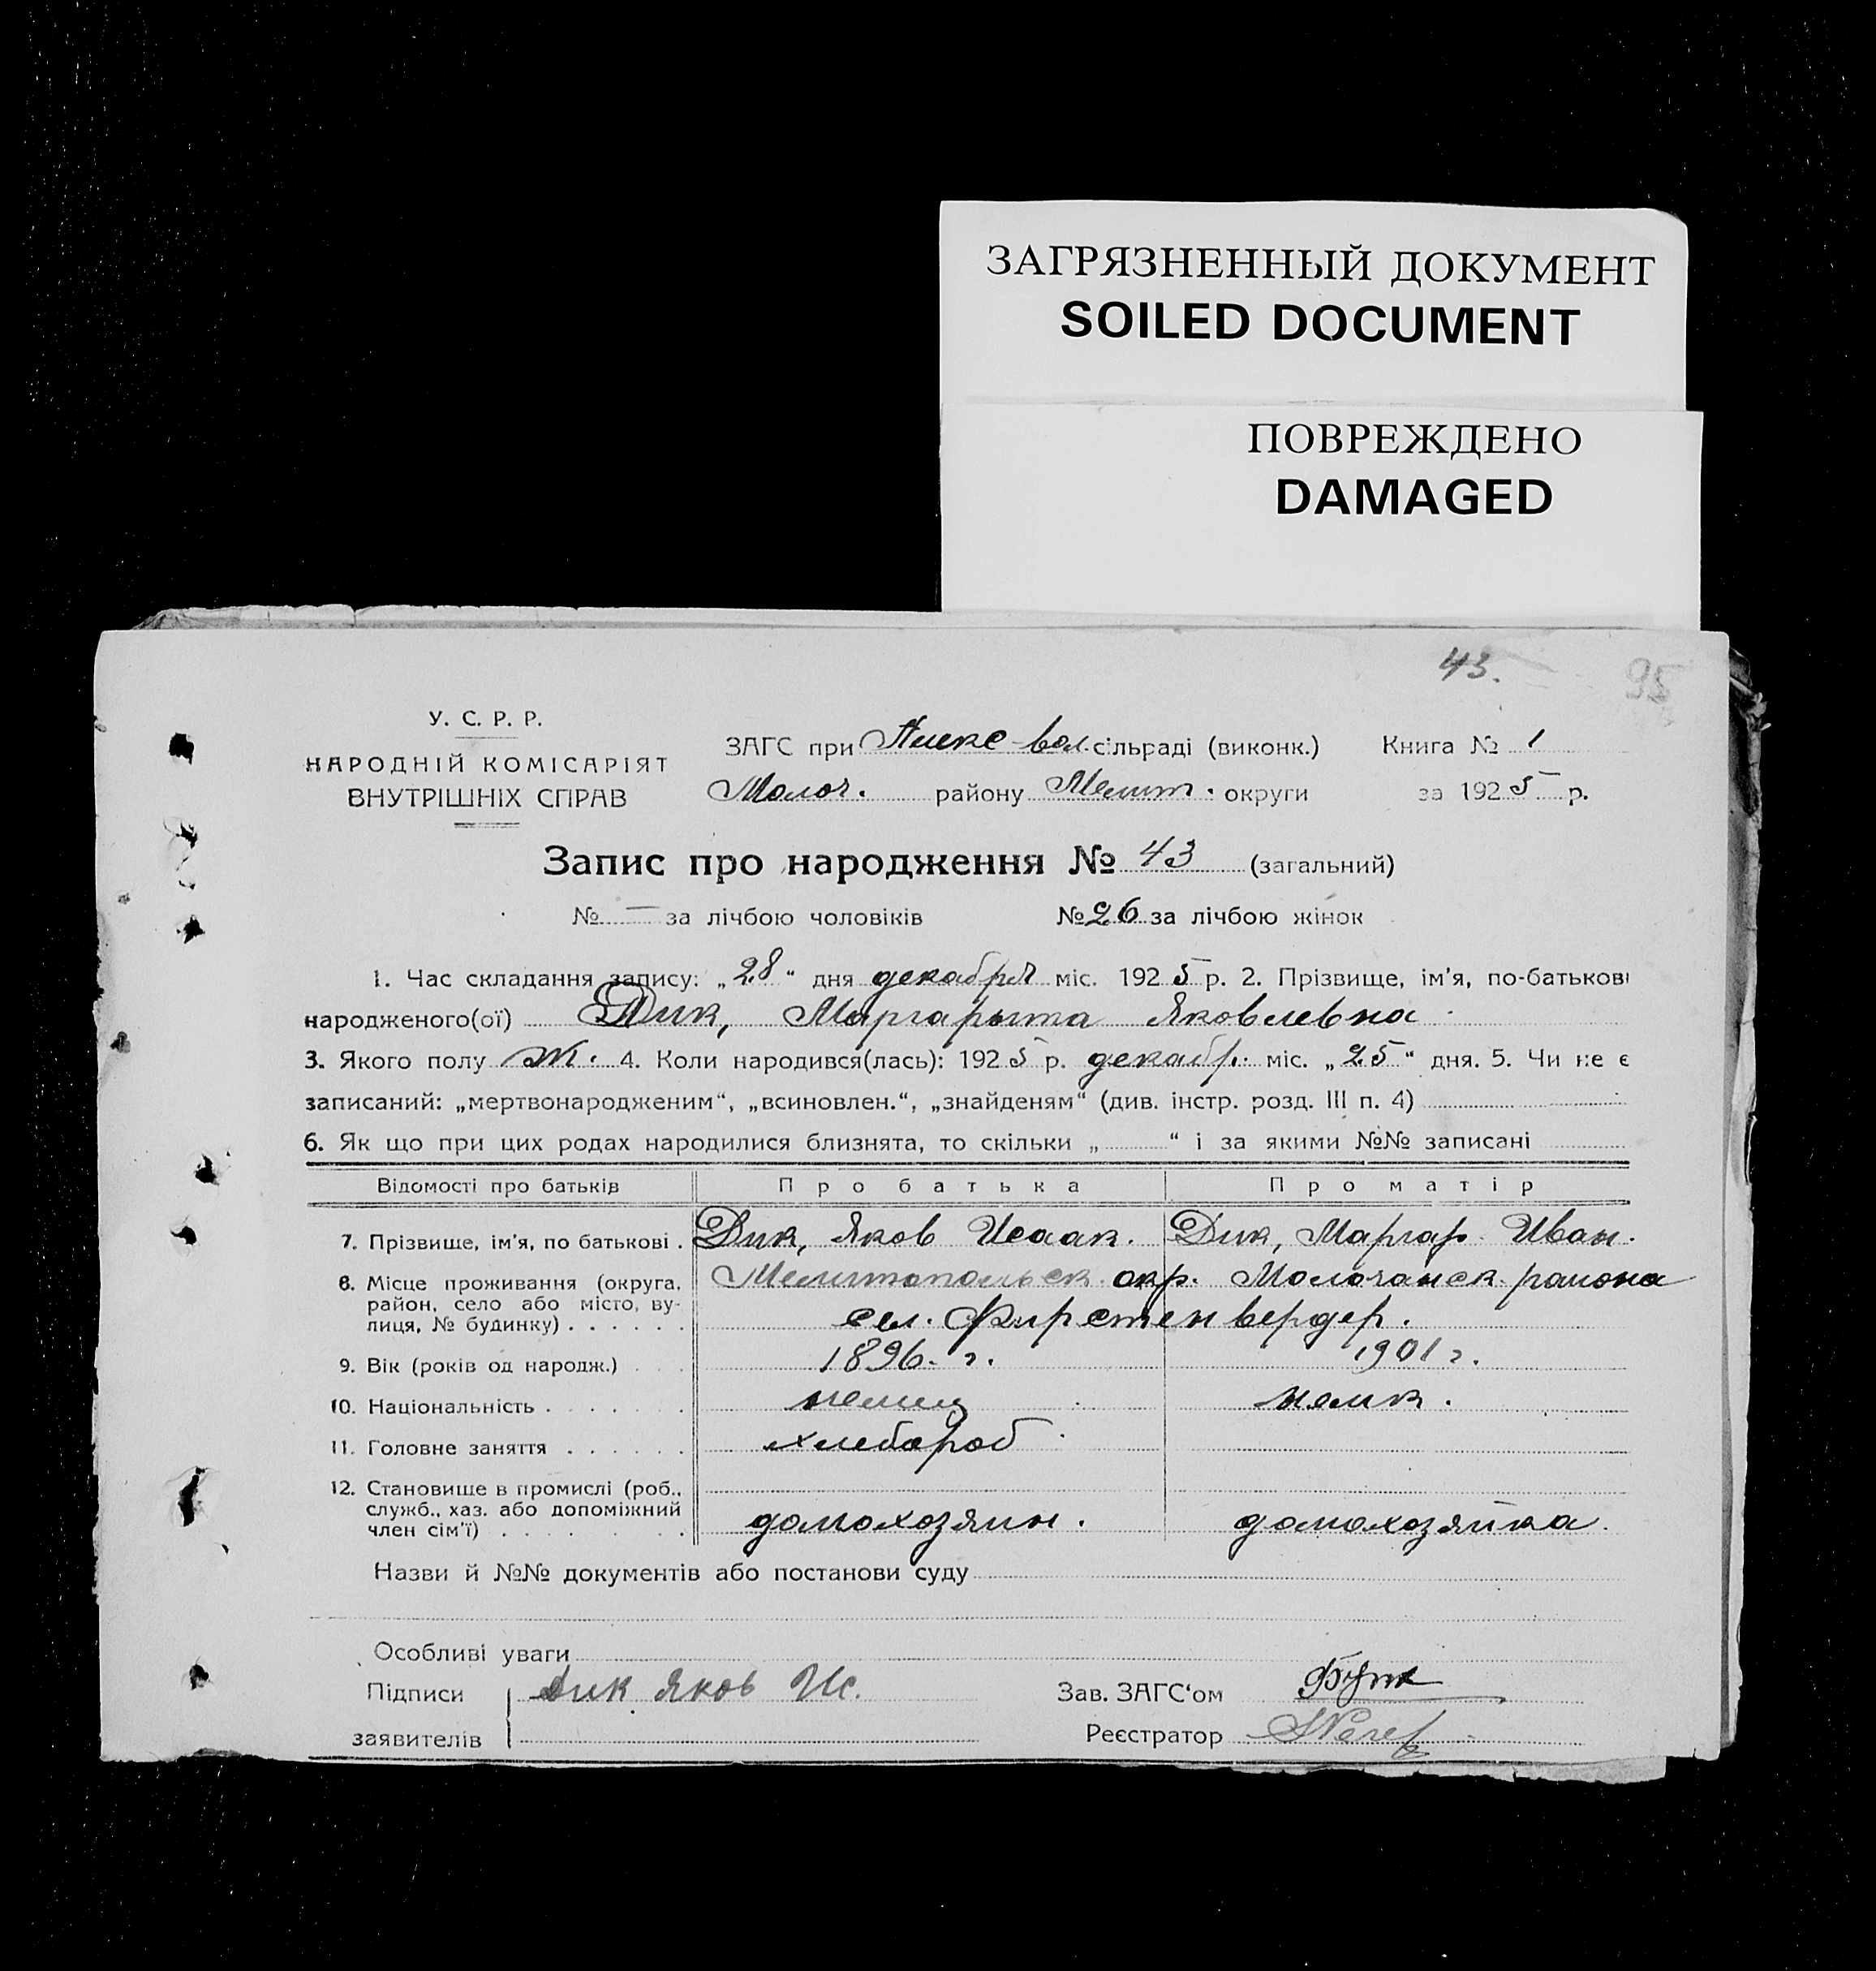 ЗАГРЯЗНЕННЫЙ ДОКУМЕНТ
SOILED DOCUMENT
ПОВРЕЖДЕНО
DAMAGED
43. 95
У. С. Р. Р.
НАРОДНІЙ КОМІСАРІЯТ
ВНУТРІШНІХ СПРАВ
ЗАГС при Алекс-вол. сільраді (виконк.) Книга № 1
Молоч. району Мелит. округи за 1925 р.
Запис про народження № 43 (загальний)
№ — за лічбою чоловіків № 26 за лічбою жінок
1. Час складання запису: „28“ дня декабря міс. 1925 р. 2. Прізвище, ім'я, по-батькові
народженого(ої) Дик, Маргарыта Яковлевна
3. Якого полу Ж. 4. Коли народився(лась): 1925 р. декабр. міс. „25“ дня. 5. Чи не є
записаний: „мертвонародженим“, „всиновлен.“, „знайденям“ (див. інстр. розд. III п. 4)
6. Як що при цих родах народилися близнята, то скільки „ “ і за якими №№ записані
Відомості про батьків Про батька Про матір
7. Прізвище, ім'я, по батькові . Дик, Яков Исаак. Дик, Маргар. Иван.
8. Місце проживання (округа, район, село або місто, вулиця, № будинку) . . . . . . Мелитопольск. окр. Молочанск. района
сел. Фирстенвердер.
9. Вік (років од народж.) . . . 1896. г. 1901 г.
10. Національність . . . . . . . немец немк.
11. Головне заняття . . . . . . хлебороб
12. Становище в промислі (роб., служб., хаз. або допоміжний член сім'ї) . . . . . . домохозяин. домохозяйка.
Назви й №№ документів або постанови суду
Особливі уваги
Підписи Дик Яков Ис. Зав. ЗАГС'ом
заявителів Реєстратор